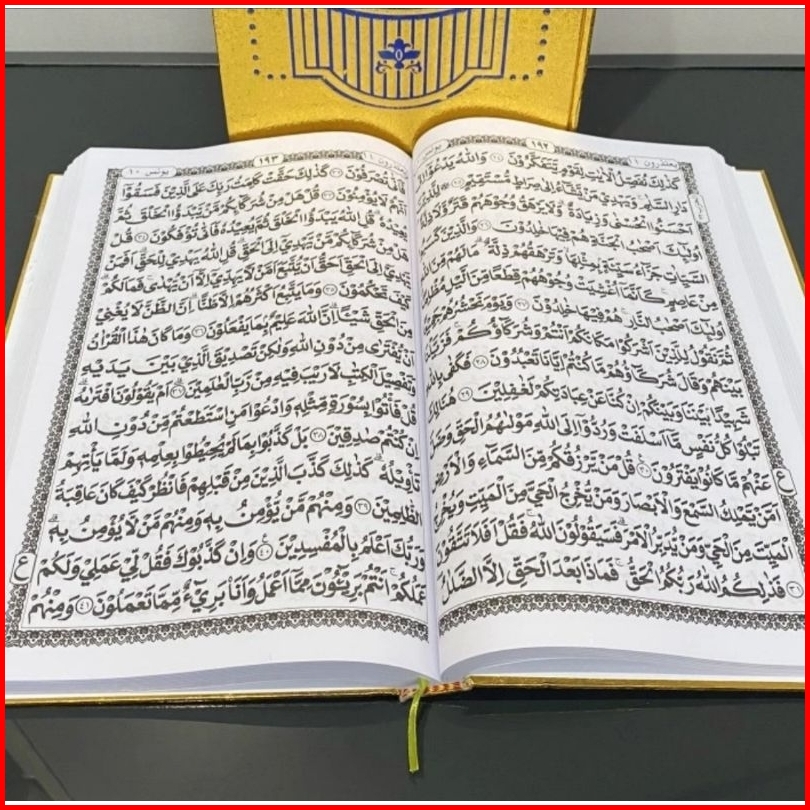 يعتذرون ١١
١٩٢
يونس
كَذٰلِكَ نُفَصِّلُ الْاٰيٰتِ لِقَوْمٍ يَّتَفَكَّرُوْنَ ۝٢٤ وَاللّٰهُ يَدْعُوْٓا اِلٰى
دَارِ السَّلٰمِ ۗ وَيَهْدِيْ مَنْ يَّشَاۤءُ اِلٰى صِرَاطٍ مُّسْتَقِيْمٍ ۝٢٥ لِلَّذِيْنَ
اَحْسَنُوا الْحُسْنٰى وَزِيَادَةٌ ۗ وَلَا يَرْهَقُ وُجُوْهَهُمْ قَتَرٌ وَّلَا ذِلَّةٌ
اُولٰۤىِٕكَ اَصْحٰبُ الْجَنَّةِ هُمْ فِيْهَا خٰلِدُوْنَ ۝٢٦ وَالَّذِيْنَ كَسَبُوا
السَّيِّاٰتِ جَزَاۤءُ سَيِّئَةٍ بِمِثْلِهَا وَتَرْهَقُهُمْ ذِلَّةٌ ۗ مَا لَهُمْ مِّنَ اللّٰهِ
مِنْ عَاصِمٍ ۚ كَاَنَّمَآ اُغْشِيَتْ وُجُوْهُهُمْ قِطَعًا مِّنَ الَّيْلِ مُظْلِمًا
اُولٰۤىِٕكَ اَصْحٰبُ النَّارِ ۚ هُمْ فِيْهَا خٰلِدُوْنَ ۝٢٧ وَيَوْمَ نَحْشُرُهُمْ جَمِيْعًا
ثُمَّ نَقُوْلُ لِلَّذِيْنَ اَشْرَكُوْا مَكَانَكُمْ اَنْتُمْ وَشُرَكَاۤؤُكُمْ ۚ فَزَيَّلْنَا
بَيْنَهُمْ وَقَالَ شُرَكَاۤؤُهُمْ مَّا كُنْتُمْ اِيَّانَا تَعْبُدُوْنَ ۝٢٨ فَكَفٰى بِاللّٰهِ
شَهِيْدًاۢ بَيْنَنَا وَبَيْنَكُمْ اِنْ كُنَّا عَنْ عِبَادَتِكُمْ لَغٰفِلِيْنَ ۝٢٩ هُنَالِكَ
تَبْلُوْا كُلُّ نَفْسٍ مَّآ اَسْلَفَتْ وَرُدُّوْٓا اِلَى اللّٰهِ مَوْلٰىهُمُ الْحَقِّ وَضَلَّ
عَنْهُمْ مَّا كَانُوْا يَفْتَرُوْنَ ۝٣٠ قُلْ مَنْ يَّرْزُقُكُمْ مِّنَ السَّمَاۤءِ وَالْاَرْضِ
اَمَّنْ يَّمْلِكُ السَّمْعَ وَالْاَبْصَارَ وَمَنْ يُّخْرِجُ الْحَيَّ مِنَ الْمَيِّتِ وَيُخْرِجُ
الْمَيِّتَ مِنَ الْحَيِّ وَمَنْ يُّدَبِّرُ الْاَمْرَ ۗ فَسَيَقُوْلُوْنَ اللّٰهُ ۚ فَقُلْ اَفَلَا تَتَّقُوْنَ
۝٣١ فَذٰلِكُمُ اللّٰهُ رَبُّكُمُ الْحَقُّ ۚ فَمَاذَا بَعْدَ الْحَقِّ اِلَّا الضَّلٰلُ
ع
يعتذرون ١١
١٩٣
يونس ١٠
فَاَنّٰى تُصْرَفُوْنَ ۝٣٢ كَذٰلِكَ حَقَّتْ كَلِمَتُ رَبِّكَ عَلَى الَّذِيْنَ فَسَقُوْٓا
اَنَّهُمْ لَا يُؤْمِنُوْنَ ۝٣٣ قُلْ هَلْ مِنْ شُرَكَاۤىِٕكُمْ مَّنْ يَّبْدَؤُا الْخَلْقَ ثُمَّ
يُعِيْدُهٗ ۗ قُلِ اللّٰهُ يَبْدَؤُا الْخَلْقَ ثُمَّ يُعِيْدُهٗ فَاَنّٰى تُؤْفَكُوْنَ ۝٣٤ قُلْ
هَلْ مِنْ شُرَكَاۤىِٕكُمْ مَّنْ يَّهْدِيْٓ اِلَى الْحَقِّ ۗ قُلِ اللّٰهُ يَهْدِيْ لِلْحَقِّ ۗ اَفَمَنْ
يَّهْدِيْٓ اِلَى الْحَقِّ اَحَقُّ اَنْ يُّتَّبَعَ اَمَّنْ لَّا يَهِدِّيْٓ اِلَّآ اَنْ يُّهْدٰى ۚ فَمَا لَكُمْ
كَيْفَ تَحْكُمُوْنَ ۝٣٥ وَمَا يَتَّبِعُ اَكْثَرُهُمْ اِلَّا ظَنًّا ۗ اِنَّ الظَّنَّ لَا يُغْنِيْ
مِنَ الْحَقِّ شَيْـًٔا ۗ اِنَّ اللّٰهَ عَلِيْمٌۢ بِمَا يَفْعَلُوْنَ ۝٣٦ وَمَا كَانَ هٰذَا الْقُرْاٰنُ
اَنْ يُّفْتَرٰى مِنْ دُوْنِ اللّٰهِ وَلٰكِنْ تَصْدِيْقَ الَّذِيْ بَيْنَ يَدَيْهِ
وَتَفْصِيْلَ الْكِتٰبِ لَا رَيْبَ فِيْهِ مِنْ رَّبِّ الْعٰلَمِيْنَ ۝٣٧ اَمْ يَقُوْلُوْنَ افْتَرٰىهُ ۗ
قُلْ فَأْتُوْا بِسُوْرَةٍ مِّثْلِهٖ وَادْعُوْا مَنِ اسْتَطَعْتُمْ مِّنْ دُوْنِ اللّٰهِ
اِنْ كُنْتُمْ صٰدِقِيْنَ ۝٣٨ بَلْ كَذَّبُوْا بِمَا لَمْ يُحِيْطُوْا بِعِلْمِهٖ وَلَمَّا يَأْتِهِمْ
تَأْوِيْلُهٗ ۗ كَذٰلِكَ كَذَّبَ الَّذِيْنَ مِنْ قَبْلِهِمْ فَانْظُرْ كَيْفَ كَانَ عَاقِبَةُ
الظّٰلِمِيْنَ ۝٣٩ وَمِنْهُمْ مَّنْ يُّؤْمِنُ بِهٖ وَمِنْهُمْ مَّنْ لَّا يُؤْمِنُ بِهٖ ۗ
وَرَبُّكَ اَعْلَمُ بِالْمُفْسِدِيْنَ ۝٤٠ وَاِنْ كَذَّبُوْكَ فَقُلْ لِّيْ عَمَلِيْ وَلَكُمْ
عَمَلُكُمْ ۚ اَنْتُمْ بَرِيْۤـُٔوْنَ مِمَّآ اَعْمَلُ وَاَنَا۠ بَرِيْۤءٌ مِّمَّا تَعْمَلُوْنَ ۝٤١ وَمِنْهُمْ
ع